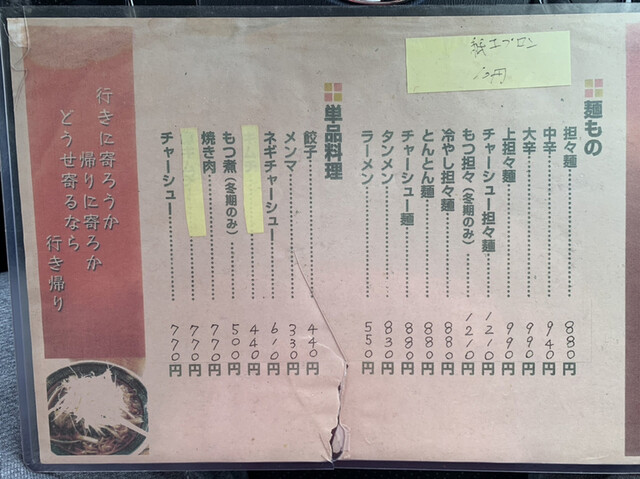 紙エプロン
10円
麺もの
担々麺 880円
中辛 940円
大辛 990円
上担々麺 990円
チャーシュー担々麺 1210円
もつ担々(冬期のみ) 1210円
冷やし担々麺 880円
とんとん麺 880円
チャーシュー麺 880円
タンメン 830円
ラーメン 550円
単品料理
餃子 440円
メンマ 330円
ネギチャーシュー 610円
キムチ 440円
もつ煮(冬期のみ) 500円
焼き肉 770円
770円
チャーシュー 770円
行きに寄ろうか
帰りに寄ろか
どうせ寄るなら
行き帰り